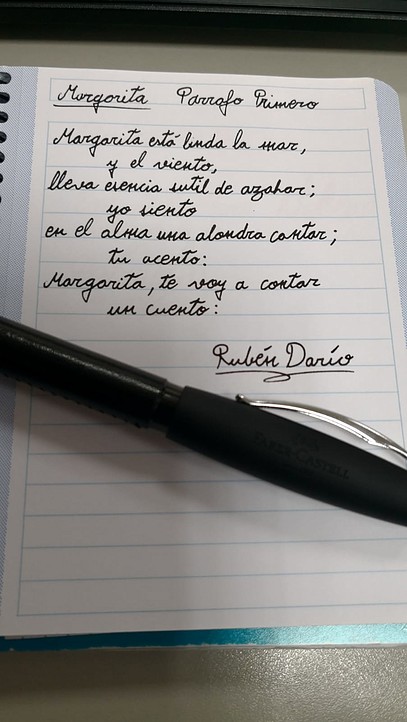 Margarita Parrafo Primero
Margarita está linda la mar,
y el viento,
lleva esencia sutil de azahar;
yo siento
en el alma una alondra cantar;
tu acento:
Margarita, te voy a contar
un cuento:
Rubén Darío
FABER-CASTELL